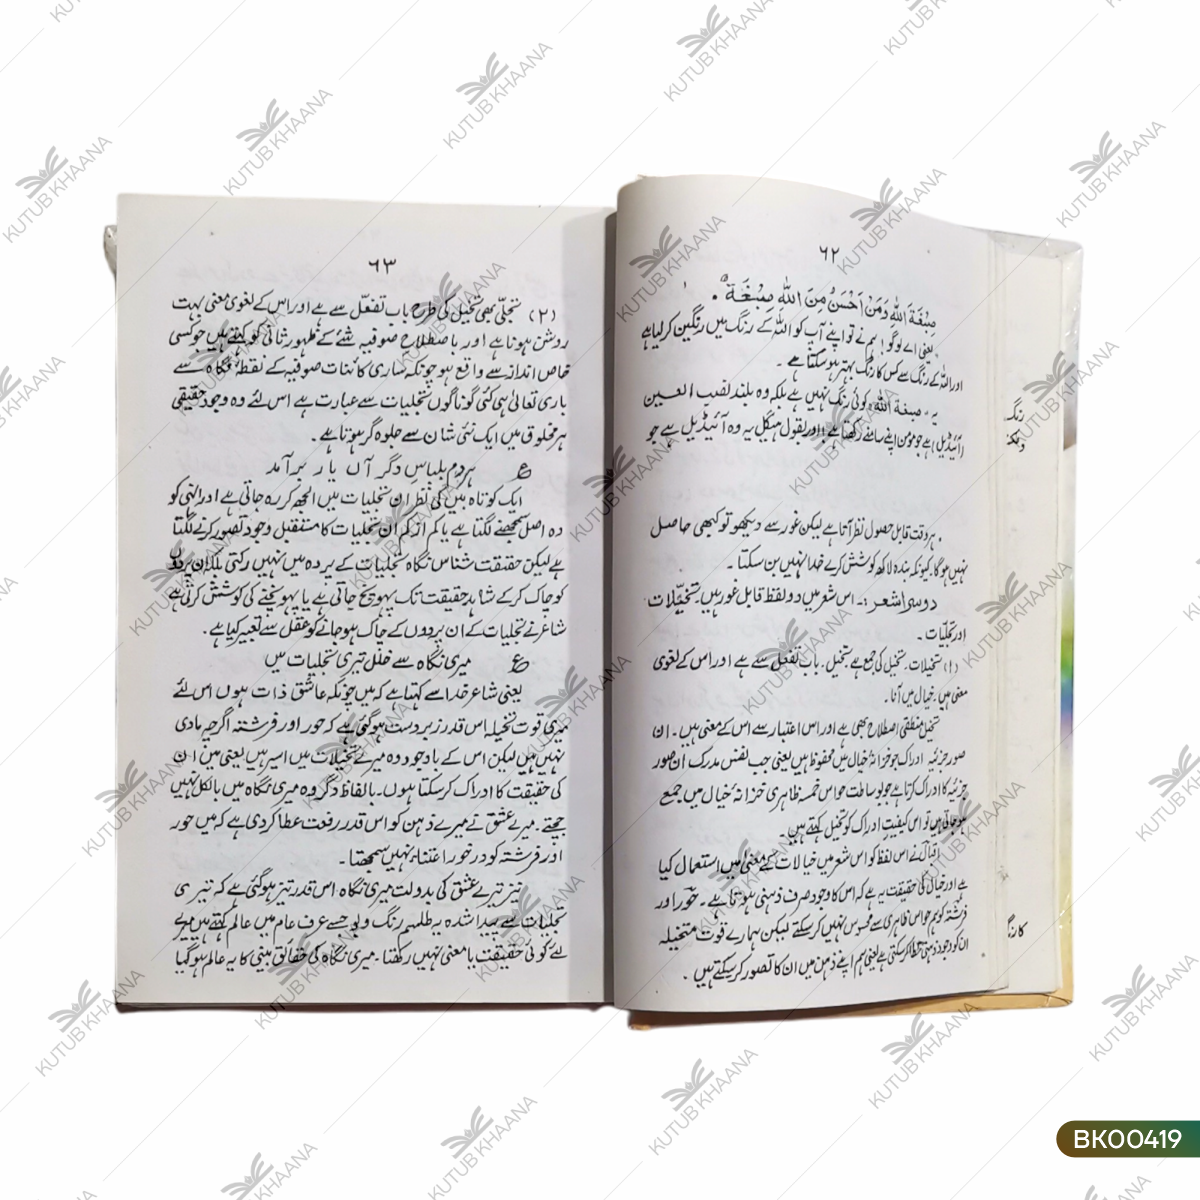 ۶۲
صِبْغَةَ اللہِ وَمَنْ اَحْسَنُ مِنَ اللہِ صِبْغَةً
یعنی اے لوگو! ہم نے تو اپنے آپ کو اللہ کے رنگ میں رنگین کرلیا ہے
اور اللہ کے رنگ سے کس کا رنگ بہتر ہوسکتا ہے۔
یہ صبغۃ اللہ کوئی رنگ نہیں ہے بلکہ وہ بلند نصب العین
(آئیڈیل) ہے جو مومن اپنے سامنے رکھتا ہے اور بقول ہیگل یہ وہ آئیڈیل ہے جو
ہر وقت قابل حصول نظر آتا ہے لیکن غور سے دیکھو تو کبھی حاصل
نہیں ہوگا۔ کیونکہ بندہ لاکھ کوشش کرے خدا نہیں بن سکتا۔
دوسرا شعر:۔ اس شعر میں دو لفظ قابل غور ہیں تخیّلات
اور تجلّیات۔
(۱) تخیلات، تخیل کی جمع ہے تخیل۔ باب تفعل سے ہے اور اس کے لغوی
معنی ہیں، خیال میں آنا۔
تخیل منطقی اصطلاح بھی ہے اور اس اعتبار سے اس کے معنی ہیں۔ ان
صور جزئیہ ادراک جو خزانۂ خیال میں محفوظ ہیں یعنی جب نفس مدرک ان صور
جزئیہ کا ادراک کرتا ہے جو بوساطت حواس خمسہ ظاہری خزانۂ خیال میں جمع
ہو جاتی ہیں تو اس کیفیت ادراک کو تخیل کہتے ہیں۔
اقبال نے اس لفظ کو اس شعر میں خیالات کے معنی میں استعمال کیا
ہے اور خیال کی حقیقت یہ ہے کہ اس کا وجود صرف ذہنی ہوتا ہے۔ حور اور
فرشتہ کو ہم حواس ظاہری سے محسوس نہیں کرسکتے لیکن ہمارے قوت متخیلہ
ان کو وجود ذہنی عطا کرسکتی ہے یعنی ہم اپنے ذہن میں ان کا تصور کرسکتے ہیں۔
۶۳
(۲) تجلّی بھی تخیل کی طرح باب تفعّل سے ہے اور اس کے لغوی معنی بہت
روشن ہونا ہے اور باصطلاح صوفیہ شئے کے ظہور ثانی کو کہتے ہیں جو کسی
خاص انداز سے واقع ہو چونکہ ساری کائنات صوفیہ کے نقطۂ نگاہ سے
باری تعالیٰ ہی کئی گوناگوں تجلیات سے عبارت ہے اس لئے وہ وجود حقیقی
ہر مخلوق میں ایک نئی شان سے جلوہ گر ہوتا ہے۔
ع ہردم بلباسِ دگر آں یار برآمد
ایک کوتاہ بیں کی نظر ان تجلیات میں الجھ کر رہ جاتی ہے اور انہی کو
وہ اصل سمجھنے لگتا ہے یا کم از کم ان تجلیات کا مستقبل وجود تصور کرنے لگتا
ہے لیکن حقیقت شناس نگاہ تجلیات کے پردہ میں نہیں رکتی بلکہ ان پردوں
کو چاک کرکے شاہد حقیقت تک پہونچ جاتی ہے یا پہونچنے کی کوشش کرتی ہے
شاعر نے تجلیات کے ان پردوں کے چاک ہو جانے کو عقل سے تعبیر کیا ہے۔
ع میری نگاہ سے خلل تیری تجلیات میں
یعنی شاعر خدا سے کہتا ہے کہ میں چونکہ عاشق ذات ہوں اس لئے
میری قوت تخیلہ اس قدر زبردست ہوگئی ہے کہ حور اور فرشتہ اگرچہ مادی
نہیں ہیں لیکن اس کے باوجود وہ میرے تخیلات میں اسیر ہیں یعنی میں ان
کی حقیقت کا ادراک کرسکتا ہوں۔ بالفاظ دگر وہ میری نگاہ میں بالکل نہیں
جچتے۔ میرے عشق نے میرے ذہن کو اس قدر رفعت عطا کردی ہے کہ میں حور
اور فرشتہ کو درخور اعتناء نہیں سمجھتا۔
نیز تیرے عشق کی بدولت میری نگاہ اس قدر تیز ہوگئی ہے کہ تیری
تجلیات سے پیدا شدہ یہ طلسم رنگ و بو جسے عرف عام میں عالم کہتے ہیں میرے
لئے کوئی حقیقت با معنی نہیں رکھتا۔ میری نگاہ کی حقائق بینی کا یہ عالم ہوگیا
رنگ
کا رنگ
KUTUB KHAANA
BK00419